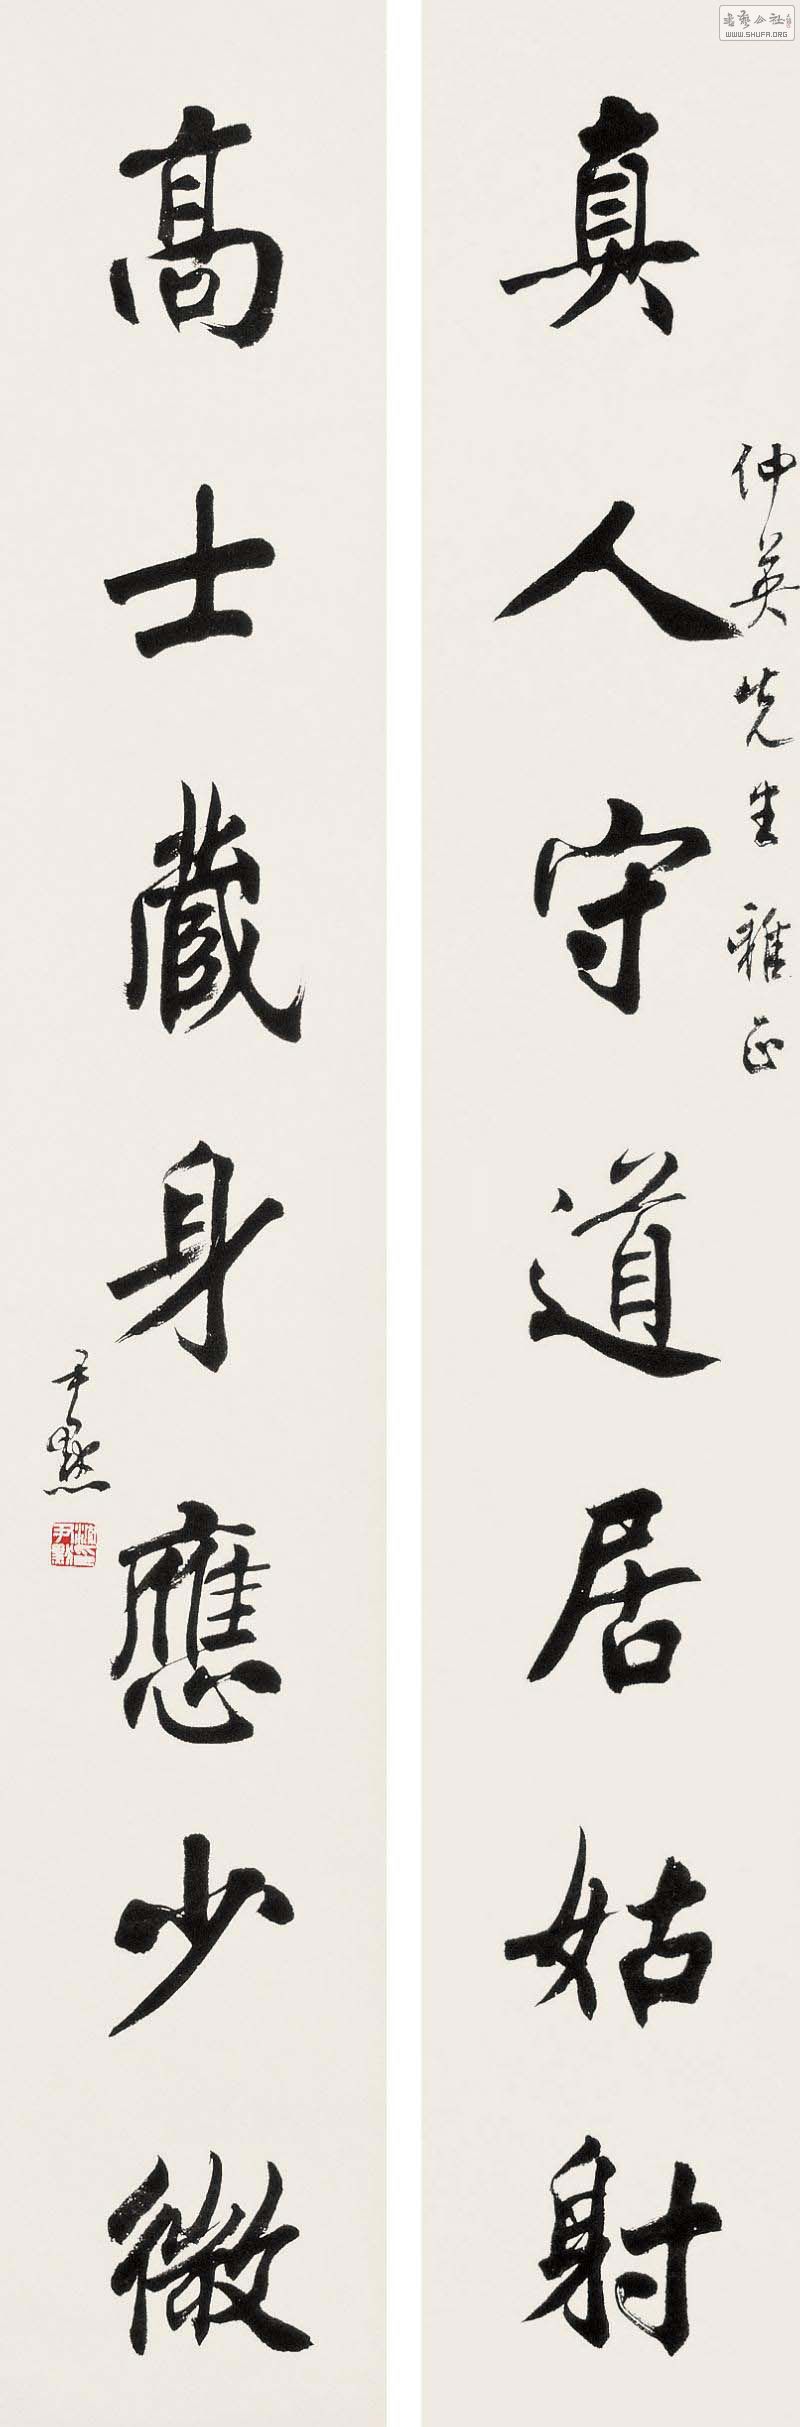 真人守道居姑射
仲英先生雅正
高士藏身應少微
尹默
沈尹默印
書藝公社
WWW.SHUFA.ORG